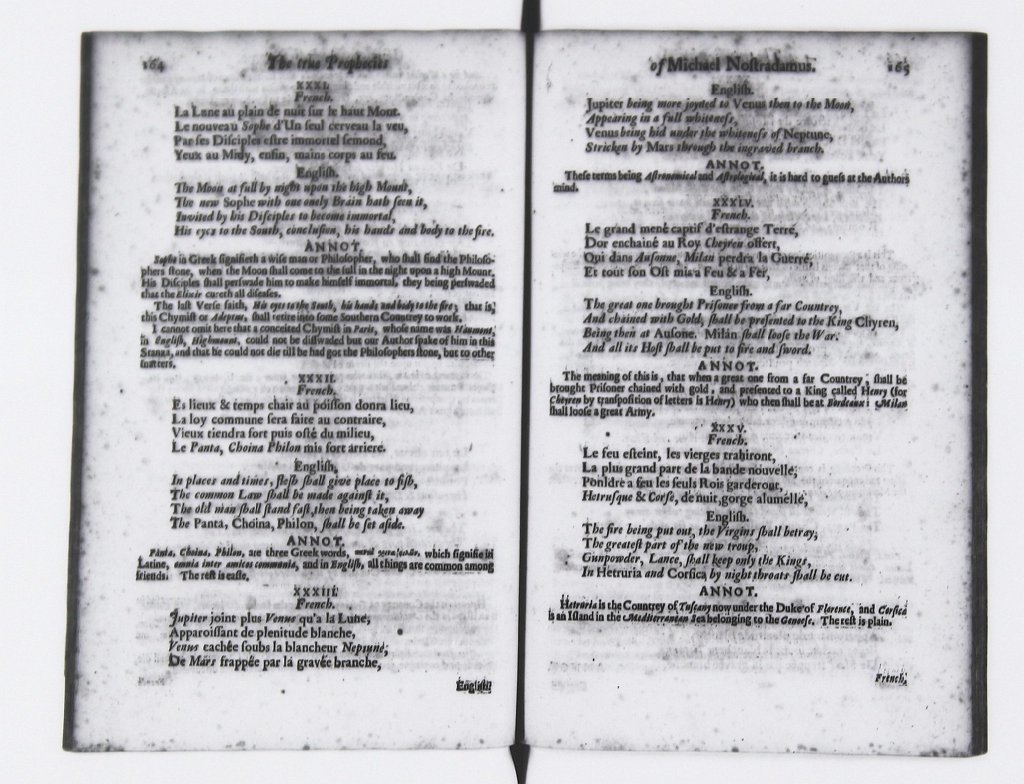 164 The true Prophecies
XXXI.
French.
La Lune au plain de nuit sur le haut Mont.
Le nouveau Sophe d'Un seul cerveau la veu,
Par ses Disciples estre immortel semond,
Yeux au Midy, enfin, mains corps au feu.
English.
The Moon at full by night upon the high Mount,
The new Sophe with one onely Brain hath seen it,
Invited by his Disciples to become immortal,
His eyes to the South, conclusion, his hands and body to the fire.
ANNOT.
Sophe in Greek signifieth a wise man or Philosopher, who shall find the Philoso-
phers stone, when the Moon shall come to the full in the night upon a high Mount,
His Disciples shall perswade him to make himself immortal, they being perswaded
that the Elixir cureth all diseases.
The last Verse saith, His eyes to the South, his hands and body to the fire; that is,
this Chymist or Adeptus, shall retire into some Southern Countrey to work.
I cannot omit here that a conceited Chymist in Paris, whose name was Haumont,
in English, Highmount, could not be disswaded but our Author spake of him in this
Stanza, and that he could not die till he had got the Philosophers stone, but to other
matters.
XXXII.
French.
Es lieux & temps chair au poisson donra lieu,
La loy commune sera faite au contraire,
Vieux tiendra fort puis osté du milieu,
Le Panta, Choina Philon mis fort arriere.
English,
In places and times, flesh shall give place to fish,
The common Law shall be made against it,
The old man shall stand fast, then being taken away
The Panta, Choina, Philon, shall be set aside.
ANNOT.
Panta, Choina, Philon, are three Greek words, which signifie in
Latine, omnia inter amicos communia, and in English, all things are common among
friends. The rest is easie.
XXXIII.
French.
Jupiter joint plus Venus qu'a la Lune,
Apparoissant de plenitude blanche,
Venus cachée soubs la blancheur Neptune,
De Mars frappée par la gravée branche,
English.
of Michael Nostradamus. 165
English.
Jupiter being more joyned to Venus then to the Moon,
Appearing in a full whiteness,
Venus being hid under the whiteness of Neptune,
Stricken by Mars through the ingraved branch.
ANNOT.
These terms being Astronomical and Astrological, it is hard to guess at the Authors
mind.
XXXIV.
French.
Le grand mené captif d'estrange Terre,
Dor enchainé au Roy Cheyren offert,
Qui dans Ausonne, Milan perdra la Guerre,
Et tout son Ost mis a Feu & a Fer,
English.
The great one brought Prisoner from a far Countrey,
And chained with Gold, shall be presented to the King Chyren,
Being then at Ausone. Milan shall loose the War.
And all its Host shall be put to fire and sword.
ANNOT.
The meaning of this is, that when a great one from a far Countrey, shall be
brought Prisoner chained with gold, and presented to a King called Henry (for
Cheyren by transposition of letters is Henry) who then shall be at Bordeaux: Milan
shall loose a great Army.
XXXV.
French.
Le feu esteint, les vierges trahiront,
La plus grand part de la bande nouvelle,
Pouldre a feu les seuls Rois garderont,
Hetrusque & Corse, de nuit, gorge alumelle,
English.
The fire being put out, the Virgins shall betray,
The greatest part of the new troup,
Gunpowder, Lance, shall keep only the Kings,
In Hetruria and Corsica by night throats shall be cut.
ANNOT.
Hetruria is the Countrey of Tuscany now under the Duke of Florence, and Corsica
is an Island in the Mediterranian Sea belonging to the Genoese. The rest is plain.
French,